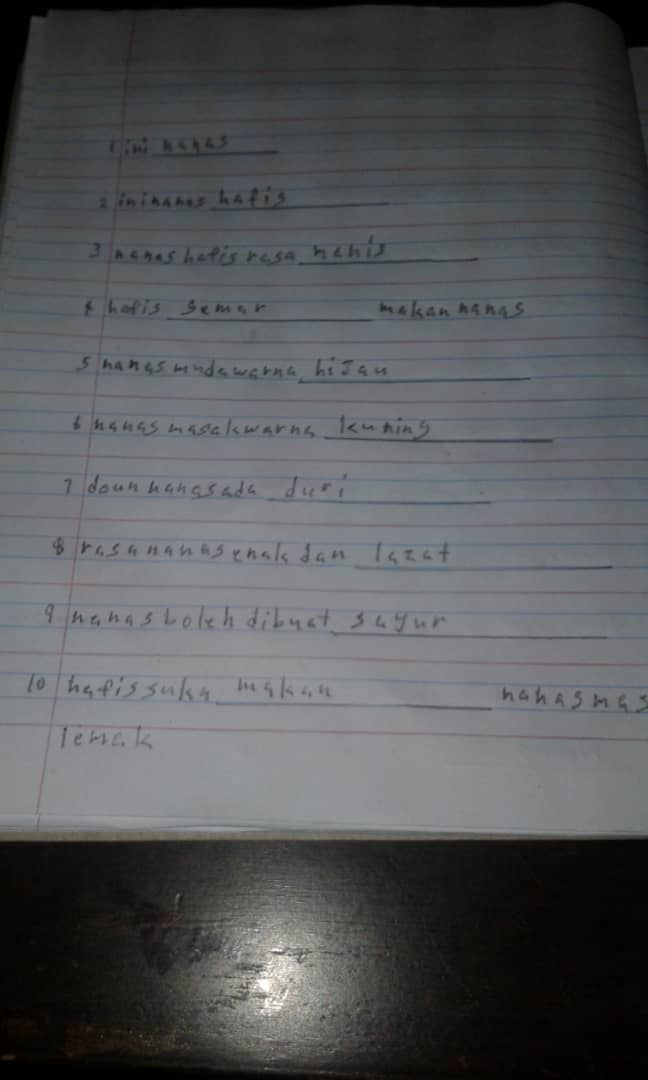 1 ini nanas
2 ini nanas hafis
3 nanas hafis rasa manis
4 hafis gemar makan nanas
5 nanas muda warna hijau
6 nanas masak warna kuning
7 daun nanas ada duri
8 rasa nanas enak dan lazat
9 nanas boleh dibuat sayur
10 hafis suka makan nanas mas
lemak